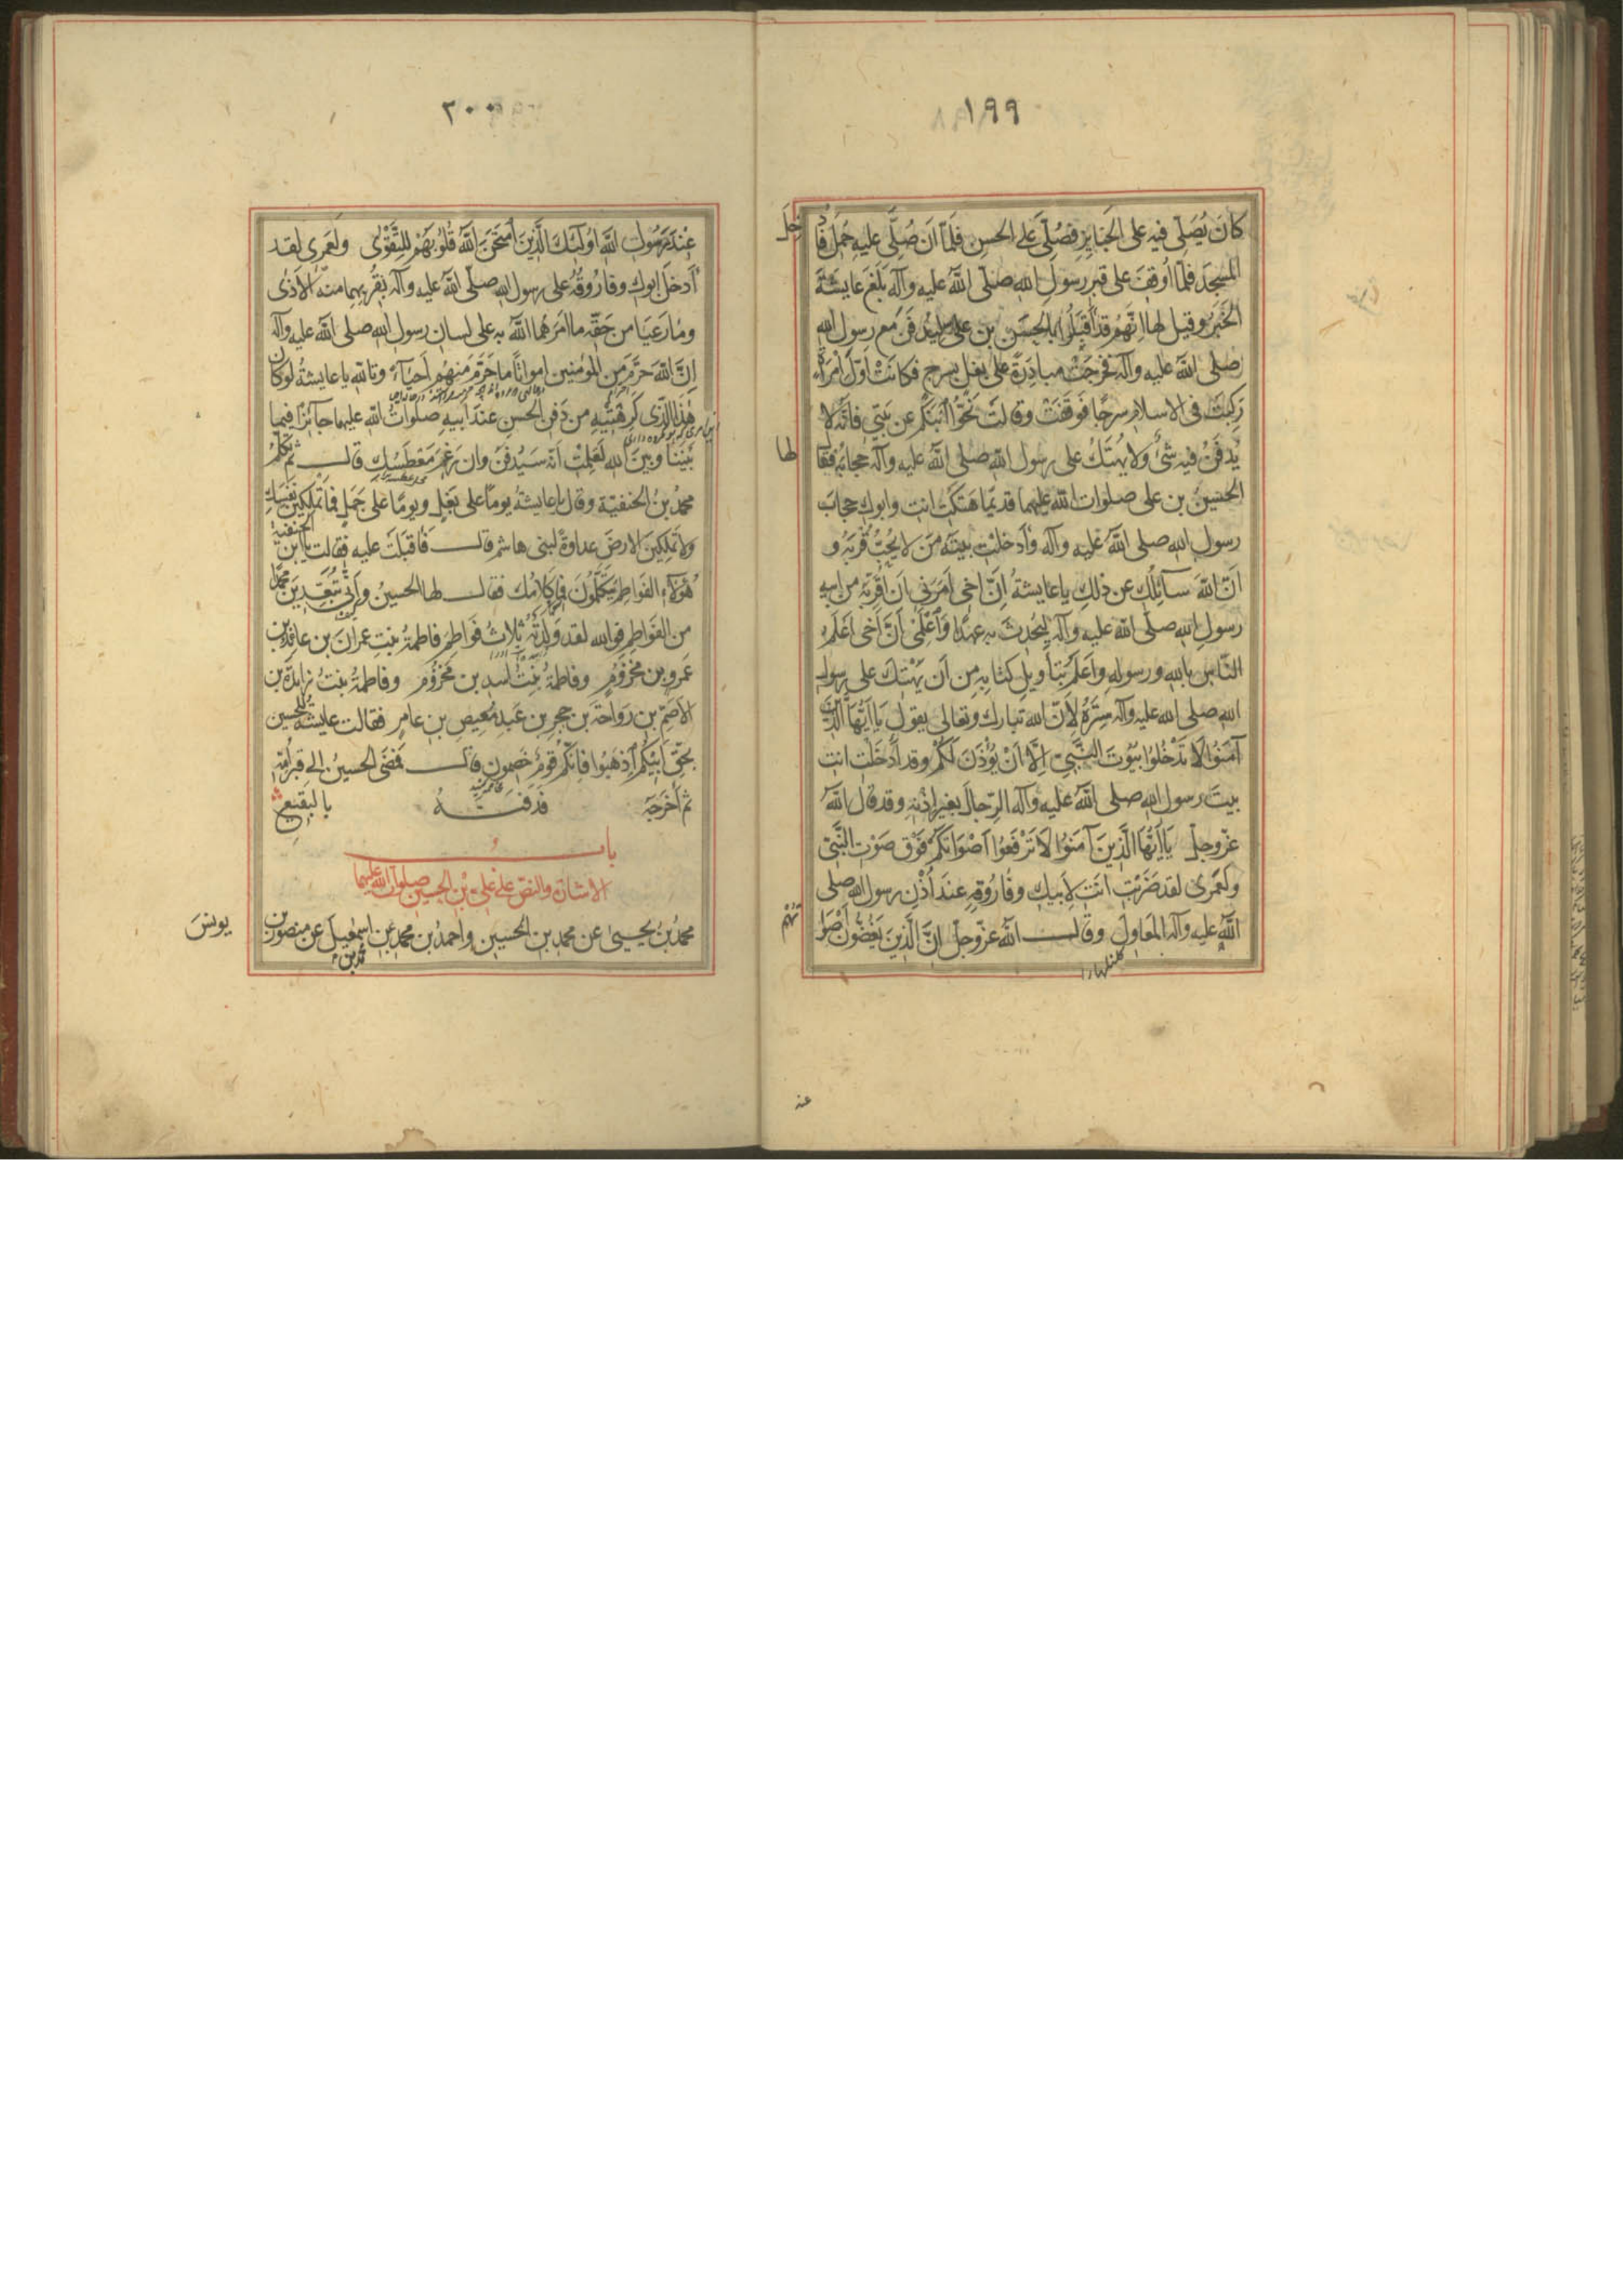 ١٩٩
كانَ يُصَلّى فيه على الجَنايِزِ فصُلِّىَ عَلى الحسنِ فلمّا اَن صُلِّى عليه حُمِلَ فاُ
دخِلَ
المسجدَ فلمّا اُوقِفَ على قبر رسولِ الله صلّى اللهُ عليه وآله بَلَغَ عايشةَ
الخبَرُ وقيل لها انّهُم قد اَقبَلُوا بالحسَنِ بن على ليُدفَنَ مع رسول الله
صلى الله عليه وآله فخرجَتْ مبادِرَةً على بغلٍ بسرجٍ فكانَتْ اوّلَ امْرَأةٍ
رَكِبَتْ فى الاسلامِ سرجًا فوقَفَتْ وقالَت نَحُّوا ابنَكم عن بَيتى فانّه لا
يُدفَنُ فيه شئٌ ولا يُهتَكُ على رسول الله صلى اللهُ عليه وآله حجابُه فقا
لها
الحسينُ بن على صلوات الله عليهما قديمًا هَتَكْتِ انتِ وابوكِ حجابَ
رسولِ الله صلى اللهُ عليه وآله وأدخلتِ بيتَه مَن لا يُحِبُّ قُربَهُ و
اَنّ اللهَ سآئِلُكِ عن ذلكِ يا عايشةُ اِنّ اخى اَمَرَنى اَن اُقَرِّبَه من ابيه
رسولِ الله صلّى الله عليه وآله ليُحدِثَ به عهدًا وَاعْلَمى اَنَّ اَخى اَعلَمُ
النّاسِ بالله ورسولِه واَعلَمُ بتأويلِ كتابِه مِن اَن يَهْتِكَ على رسولِ
الله صلى الله عليه وآله سِترَهُ لِاَنّ الله تبارك وتعالى يقول يا اَيّهَا الَّذينَ
آمَنُوا لَا تَدْخُلُوا بُيُوتَ النَّبِىِّ اِلَّا اَنْ يُؤْذَنَ لَكُمْ وقد اَدْخَلْتِ انتِ
بيتَ رسول الله صلى اللهُ عليه وآله الرّجالَ بغير اِذْنِهِ وقد قال اللهُ
عزّ وجلّ يَا اَيُّهَا الَّذِينَ آمَنُوا لَا تَرْفَعُوا اَصْوَاتَكُمْ فَوْقَ صَوْتِ النَّبِىِّ
ولعَمرى لقد ضَرَبْتِ انتِ لِاَبيكِ وفَارُوقِهِ عندَ اُذُنِ رسول الله صلى
اللهُ عليه وآله المَعاوِلَ وقال اللهُ عزّ وجلّ اِنَّ الَّذِينَ يَغُضُّونَ اَصْوَا
تَهُمْ
كلنگهارا
عنه
٢٠٠
عِنْدَ رَسُولِ اللهِ اُولَئِكَ الَّذِينَ امْتَحَنَ اللهُ قُلُوبَهُمْ لِلتَّقْوَى ولَعَمرى لقد
أدخَلَ ابوكِ وفارُوقُهُ على رسول الله صلّى اللهُ عليه وآله بقُربِهِما منه الاَذَى
ومَا رَعَيَا من حَقّهِ ما اَمَرَهُما اللهُ به على لسانِ رسول الله صلى الله عليه وآله
اِنَّ اللهَ حَرَّمَ مِن المؤمنين امواتًا ما حَرَّمَ مِنهُم اَحيَآءً وتالله يا عايشةُ لو كان
هَذَا الّذى كَرِهْتِيْهِ من دَفنِ الحسنِ عندَ ابيهِ صلواتُ الله عليهما جآئزًا فيما
بَيْنَنا وبينَ الله لَعَلِمْتِ انّه سَيُدفَنُ وان رَغِمَ مَعْطَسُكِ قال ثم تكلّمَ
محمدُ بنُ الحنفيّة وقال يا عايشةُ يومًا على بَغلٍ ويومًا على جَمَلٍ فما تَملِكينَ نَفْسَكِ
ولا تَملِكينَ الارضَ عداوةً لبنى هاشمٍ قال فَاَقبَلَتْ عليه فقالت يا ابن الحنفيّة
هؤلآءِ الفَواطِمُ يَتكَلّمُونَ فما كلامُك فقال لها الحسينُ واَنّى تُبَعِّدِينَ محمدًا
من الفَواطِمِ فوالله لقد وَلَدَتْهُ ثلاثُ فَواطِمَ فاطمةُ بنتِ عِمرانَ بن عائِذِ بن
عَمرو بن مَخزُومٍ وفاطمةُ بنتُ اسدِ بن مَخزُوم وفاطمةُ بنتُ زايدَةَ بن
الاَصَمّ بن رَواحةَ بن حجرِ بن عَبدِ مَعِيصِ بن عامرٍ فقالت عايشةُ للحسين
بحقّ اَبيكُم اذهَبُوا فانّكُم قومٌ خَصِمُونَ قال فمَضَى الحسينُ الى قبر اُمّه
ثم اَخرَجَه فدفنه بالبَقيعِ
بابُ
الاشارة والنصّ على علىِّ بْنِ الحسين صلوات الله عليهما
محمدُ بنُ يحيى عن محمد بن الحسين واَحمدُ بن محمد عن اسمعيل عن منصورِ بن
محمد بن
يونسَ